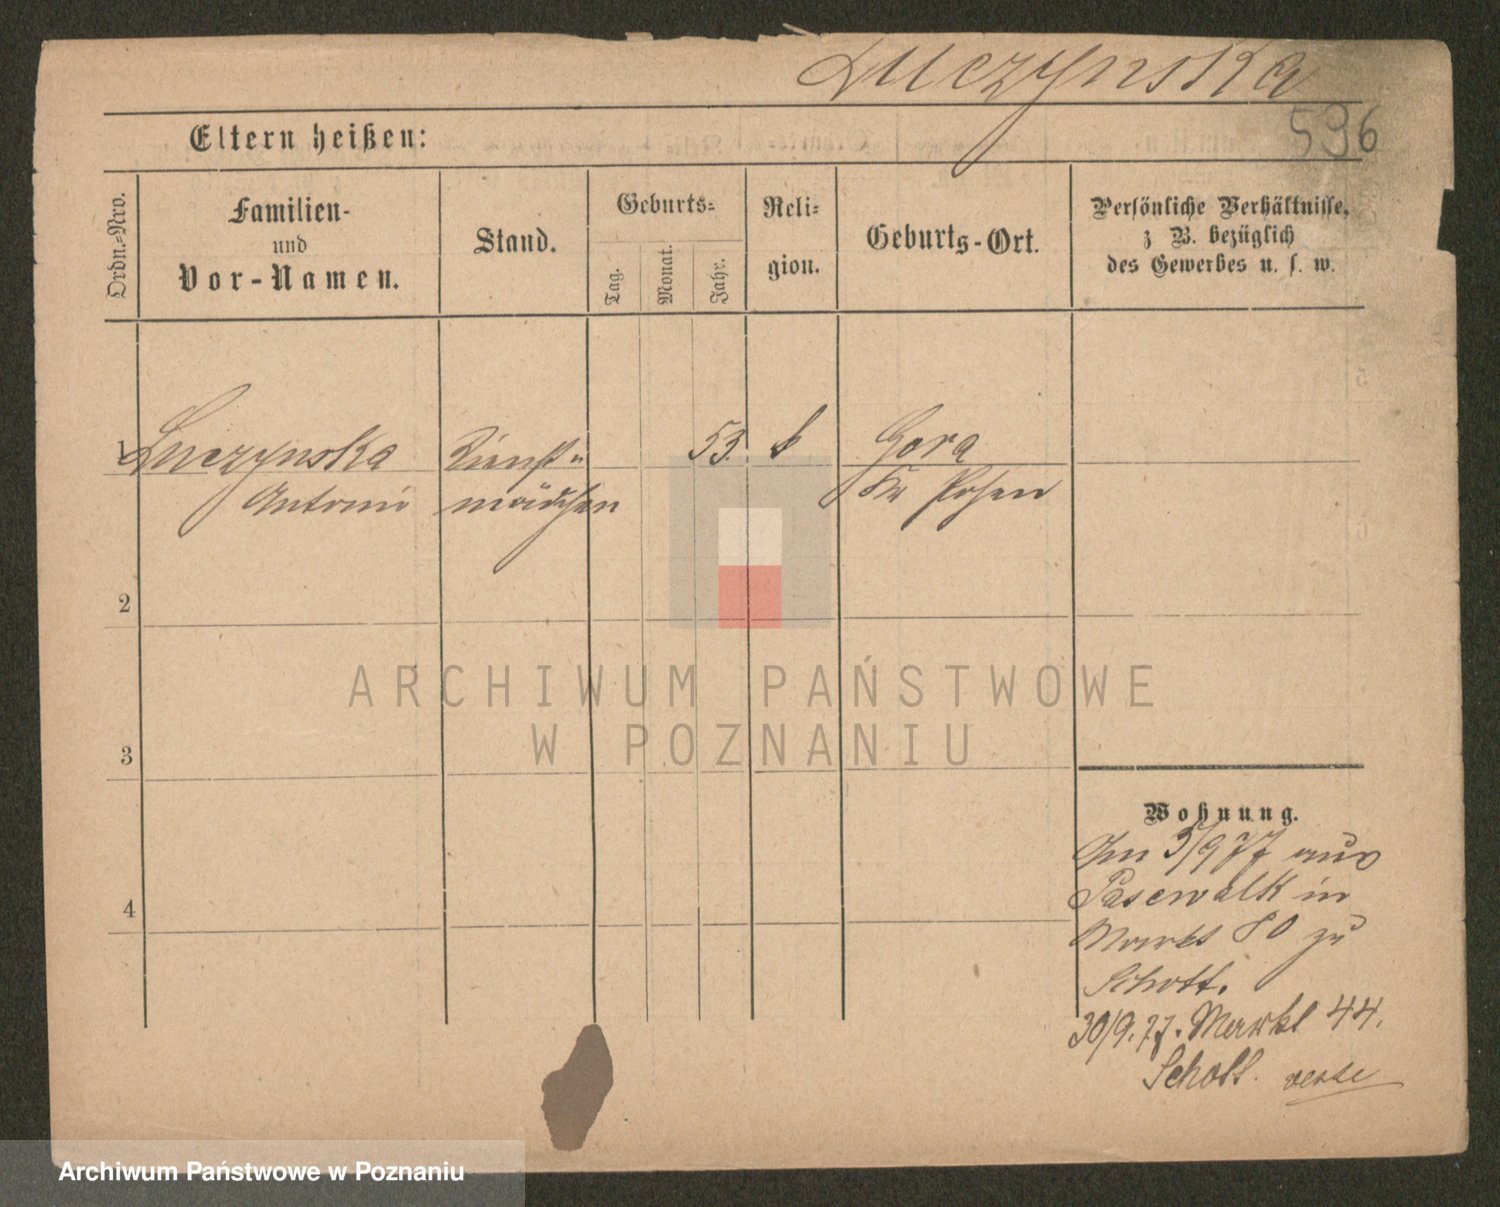 Luczynska
596
Eltern heißen:
Ordn.-Nro.
Familien-
und
Vor-Namen.
Stand.
Geburts-
Tag.
Monat.
Jahr.
Reli-
gion.
Geburts-Ort.
Persönliche Verhältnisse,
z B. bezüglich
des Gewerbes u. s. w.
1 Luczynska Dienst 53. k Gora
Antonie mädchen Kr Posen
2
3
4
Wohnung.
Am 3/9 77 aus
Pasewalk in
Markt 80 zu
Schott.
30/9. 77. Markt 44.
Schott. verte
ARCHIWUM PAŃSTWOWE
W POZNANIU
Archiwum Państwowe w Poznaniu